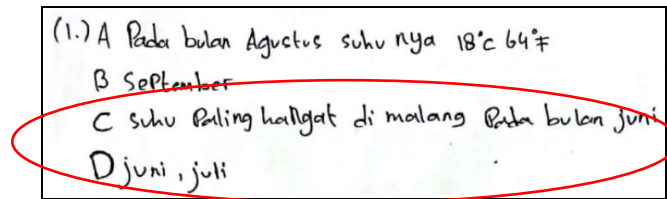 (1.) A Pada bulan Agustus suhu nya 18°c 64°F
B September
C suhu Paling hangat di malang Pada bulan juni
D juni, juli